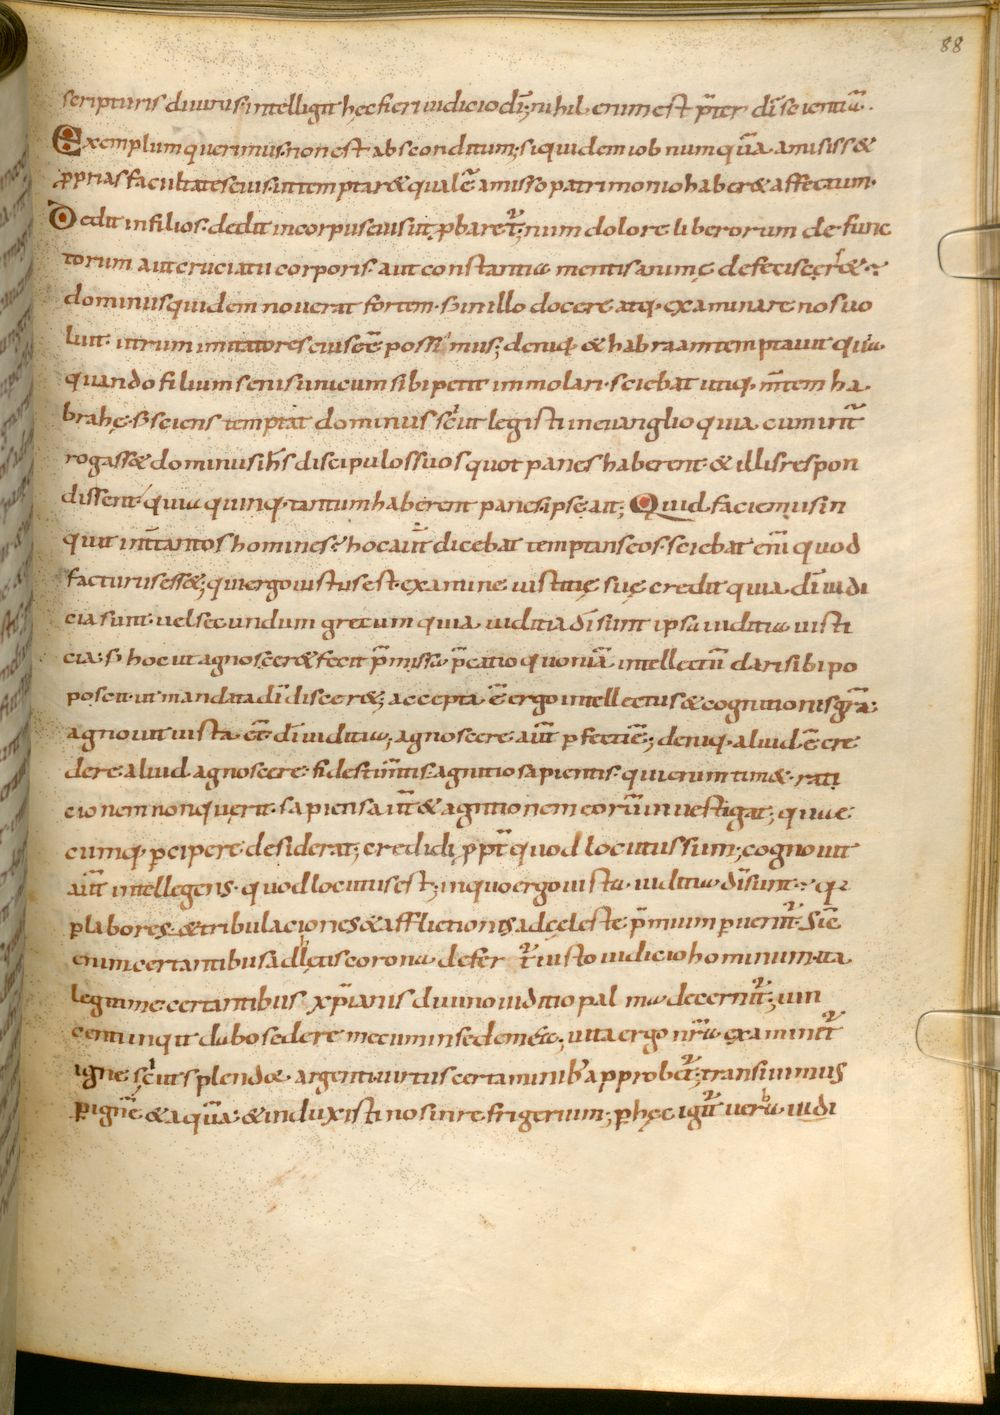 88
scripturis diuinis· intelligit hęc fieri iudicio dī; nihil enim est p̄ter dī scientiā.
Exemplum querimus· non est absconditum; siquidem iob numquā amisiss&
ꝓprias facultates· eius ut temptar& qualē amisso patrimonio haber& affectum·
Dedit in filios· dedit in corpus eius ut ꝓbaret᷑; num dolore liberorum defunc
torum aut cruciatu corporis· aut constantia mentis animę defeciscer&·
dominus quidem nouerat fortem· s; in illo docere atq· examinare nos uo
luit· utrum imitatores eius eē possimus; deniq· & habraam temptauit quia
quando filium senis unicum sibi petit immolari· sciebat utiq· m̄tem ha
brahę· s; sciens temptat dominus sic̄ut legisti in euanglio quia cum int̄
rogass& dominus ih̄s discipulos suos quot panes haberent· & illi respon
dissent· quia quinq· tantum haberent panes· ipse ait; Quid faciemus in
quit int̄ tantos homines? hoc aut̄ dicebat temptans eos· sciebat eni᷑ quod
facturus ess&; qui ergo iustus est· examine iustitię suę credit quia dī iudi
cia sunt· uel secundum grecum quia iuditia dī sunt ipsa iuditia iusti
cia· s; hoc ut agnoscer& fecit p̄missa p̄catio quoniā intellectū dari sibi po
poscit· ut mandata dī discer&; accepta ē ergo intellectus & cognitionis gr̄a·
agnouit iusta eē dī iuditia; agnoscere aut̄ ꝑfectiē; deniq· aliud ē cre
dere· aliud agnoscere· fides tim̄tis· agnitio sapientis· qui enim tim& rati
cionem non querit· sapiens aut̄ & agnitionem eorū inuestigat; quae
cumq· ꝑcipere desiderat; credidi ꝓpt̄ quod locutus sum; cognouit
aut̄ intellegens· quod locutus est; in quo ergo iusta iuditia dī sunt· qꝛ
ꝑ labores & tribulaciones & afflictionis ad cęleste p̄mium ꝑuenit᷑. Sic̄
enim certantibus adletis corona defert᷑ iusto iudicio hominum· ita
legitime certantibus xp̄ianis diuino iuditio palma decernit᷑; uin
centi inqit dabo sedere mecum in sede mea; uita ergo nr̄a examinat᷑
igne sic̄ut splendor argenti· uirtus certaminib; approbet᷑; transiuimus
ꝑ ignē & aquā· & induxisti nos in refrigerium; ꝑ hęc igit᷑ uerba iudi